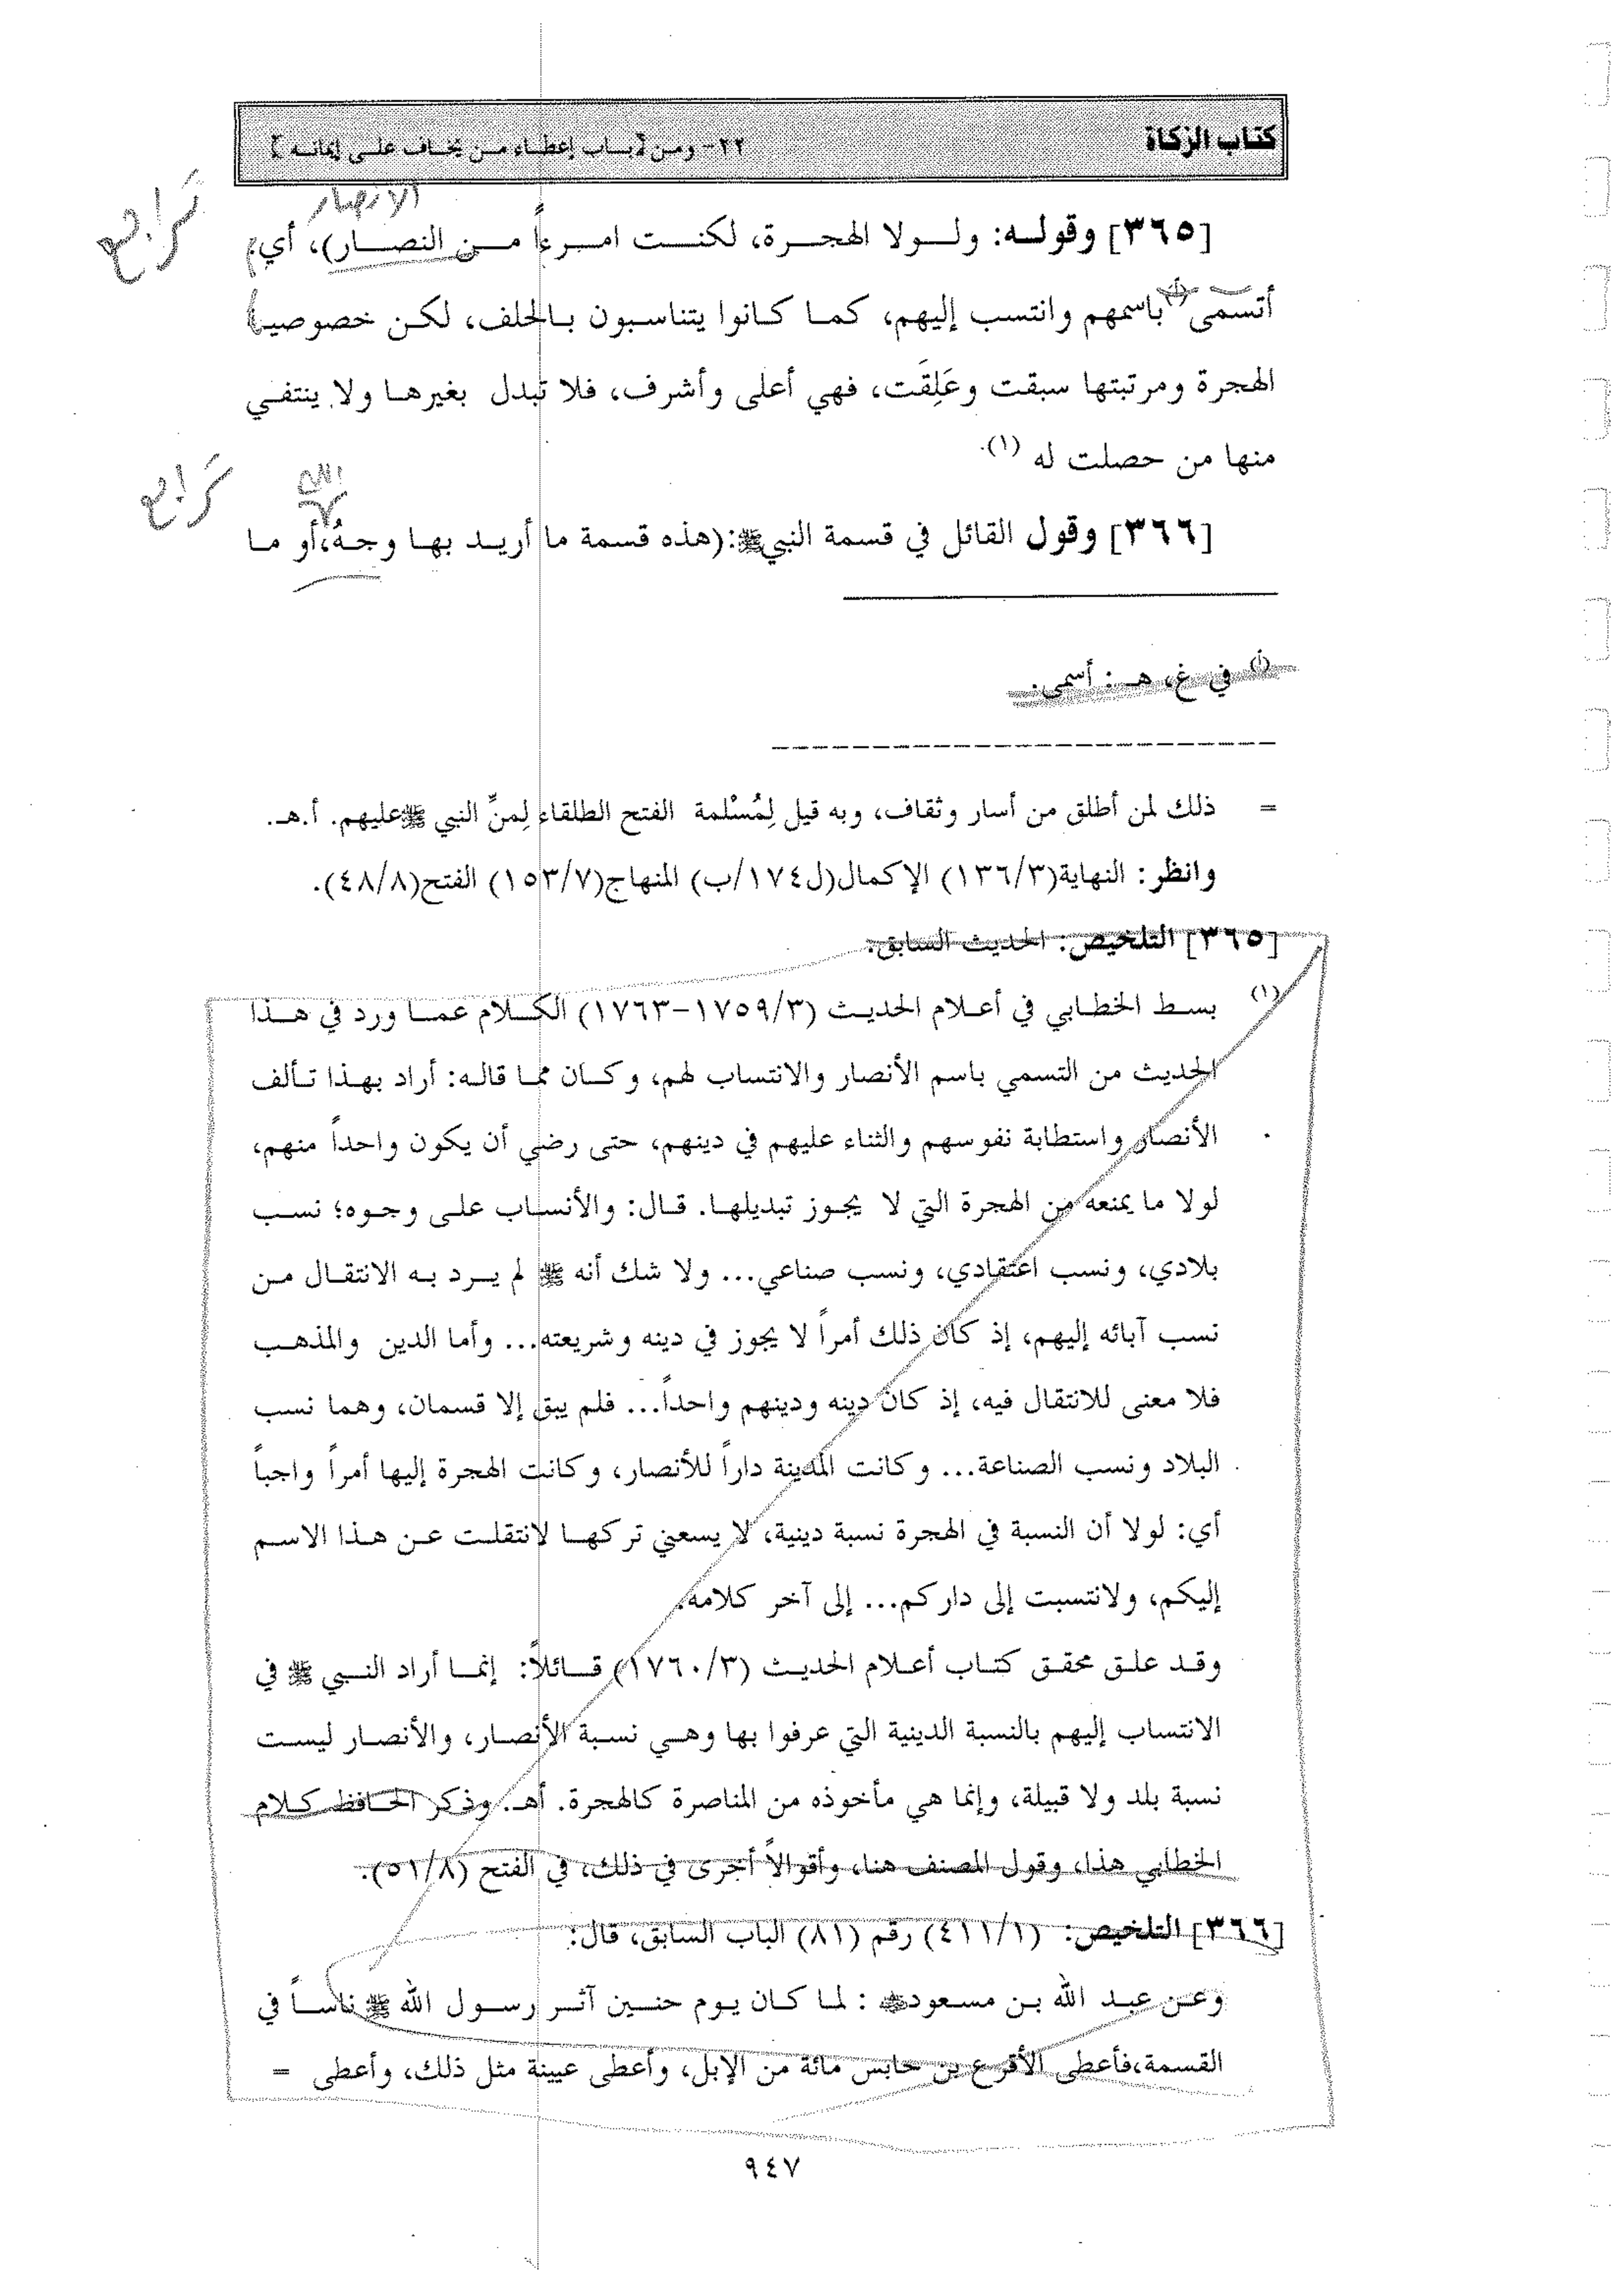 كتاب الزكاة
٢٢- ومن [باب إعطاء من يخاف على إيمانه]
الانصار
[٣٦٥] وقوله: ولولا الهجرة، لكنت امرءاً من النصار)، أي:
أتسمى(أ) باسمهم وانتسب إليهم، كما كانوا يتناسبون بالحلف، لكن خصوصية
الهجرة ومرتبتها سبقت وعَلِقَت، فهي أعلى وأشرف، فلا تبدل بغيرها ولا ينتفي
منها من حصلت له (١).
الله
[٣٦٦] وقول القائل في قسمة النبيﷺ:(هذه قسمة ما أريد بها وجهُ،أو ما
(أ) في غ، هـ: أسمى.
= ذلك لمن أطلق من أسار وثقاف، وبه قيل لِمُسْلمة الفتح الطلقاء لِمنِّ النبي ﷺعليهم. أ.هـ.
وانظر: النهاية(١٣٦/٣) الإكمال(ل١٧٤/ب) المنهاج(١٥٣/٧) الفتح(٤٨/٨).
[٣٦٥] التلخيص: الحديث السابق.
(١) بسط الخطابي في أعلام الحديث (١٧٥٩/٣-١٧٦٣) الكلام عما ورد في هذا
الحديث من التسمي باسم الأنصار والانتساب لهم، وكان مما قاله: أراد بهذا تألف
الأنصار واستطابة نفوسهم والثناء عليهم في دينهم، حتى رضي أن يكون واحداً منهم،
لولا ما يمنعه من الهجرة التي لا يجوز تبديلها. قال: والأنساب على وجوه؛ نسب
بلادي، ونسب اعتقادي، ونسب صناعي... ولا شك أنه ﷺ لم يرد به الانتقال من
نسب آبائه إليهم، إذ كان ذلك أمراً لا يجوز في دينه وشريعته... وأما الدين والمذهب
فلا معنى للانتقال فيه، إذ كان دينه ودينهم واحداً... فلم يبق إلا قسمان، وهما نسب
البلاد ونسب الصناعة... وكانت المدينة داراً للأنصار، وكانت الهجرة إليها أمراً واجباً
أي: لولا أن النسبة في الهجرة نسبة دينية، لا يسعني تركها لانتقلت عن هذا الاسم
إليكم، ولانتسبت إلى داركم... إلى آخر كلامه.
وقد علق محقق كتاب أعلام الحديث (١٧٦٠/٣) قائلاً: إنما أراد النبي ﷺ في
الانتساب إليهم بالنسبة الدينية التي عرفوا بها وهي نسبة الأنصار، والأنصار ليست
نسبة بلد ولا قبيلة، وإنما هي مأخوذه من المناصرة كالهجرة. أهـ. وذكر الحافظ كلام
الخطابي هذا، وقول المصنف هنا، وأقوالاً أخرى في ذلك، في الفتح (٥١/٨).
[٣٦٦] التلخيص: (٤١١/١) رقم (٨١) الباب السابق، قال:
وعن عبد الله بن مسعود : لما كان يوم حنين آثر رسول الله ﷺ ناساً في
القسمة،فأعطى الأقرع بن حابس مائة من الإبل، وأعطى عيينة مثل ذلك، وأعطى =
٩٤٧